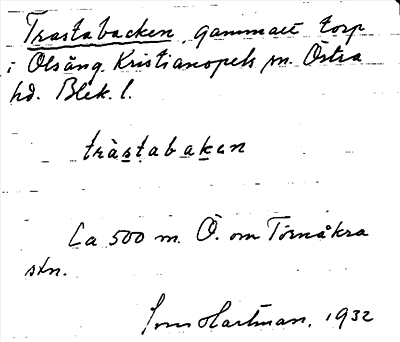 Trastabacken, gammalt torp
i Olsäng. Kristianopels sn. Östra
hd. Blek. l.
tràstabaken
Ca 500 m. Ö. om Törnåkra
stn.
Hartman. 1932